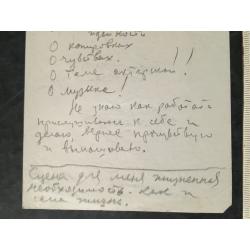 О копировках
О чувствах. !!
О теме актерской!
О музыке!
Не знаю как работать
прислушиваюсь к себе и
делаю вернее прочувствую
и вынашиваю.
Сцена для меня жизненная
необходимость. Как и
сама жизнь.